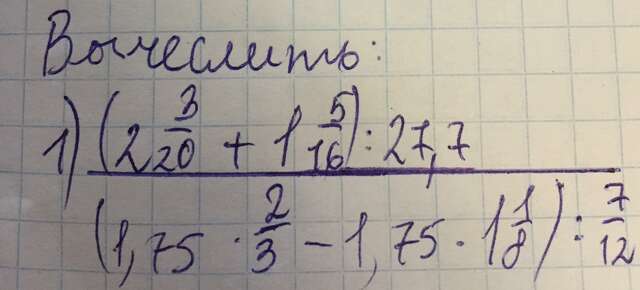 Вычеслить:
1) (2 3/20 + 1 5/16) : 27,7
(1,75 · 2/3 - 1,75 · 1 1/8) : 7/12